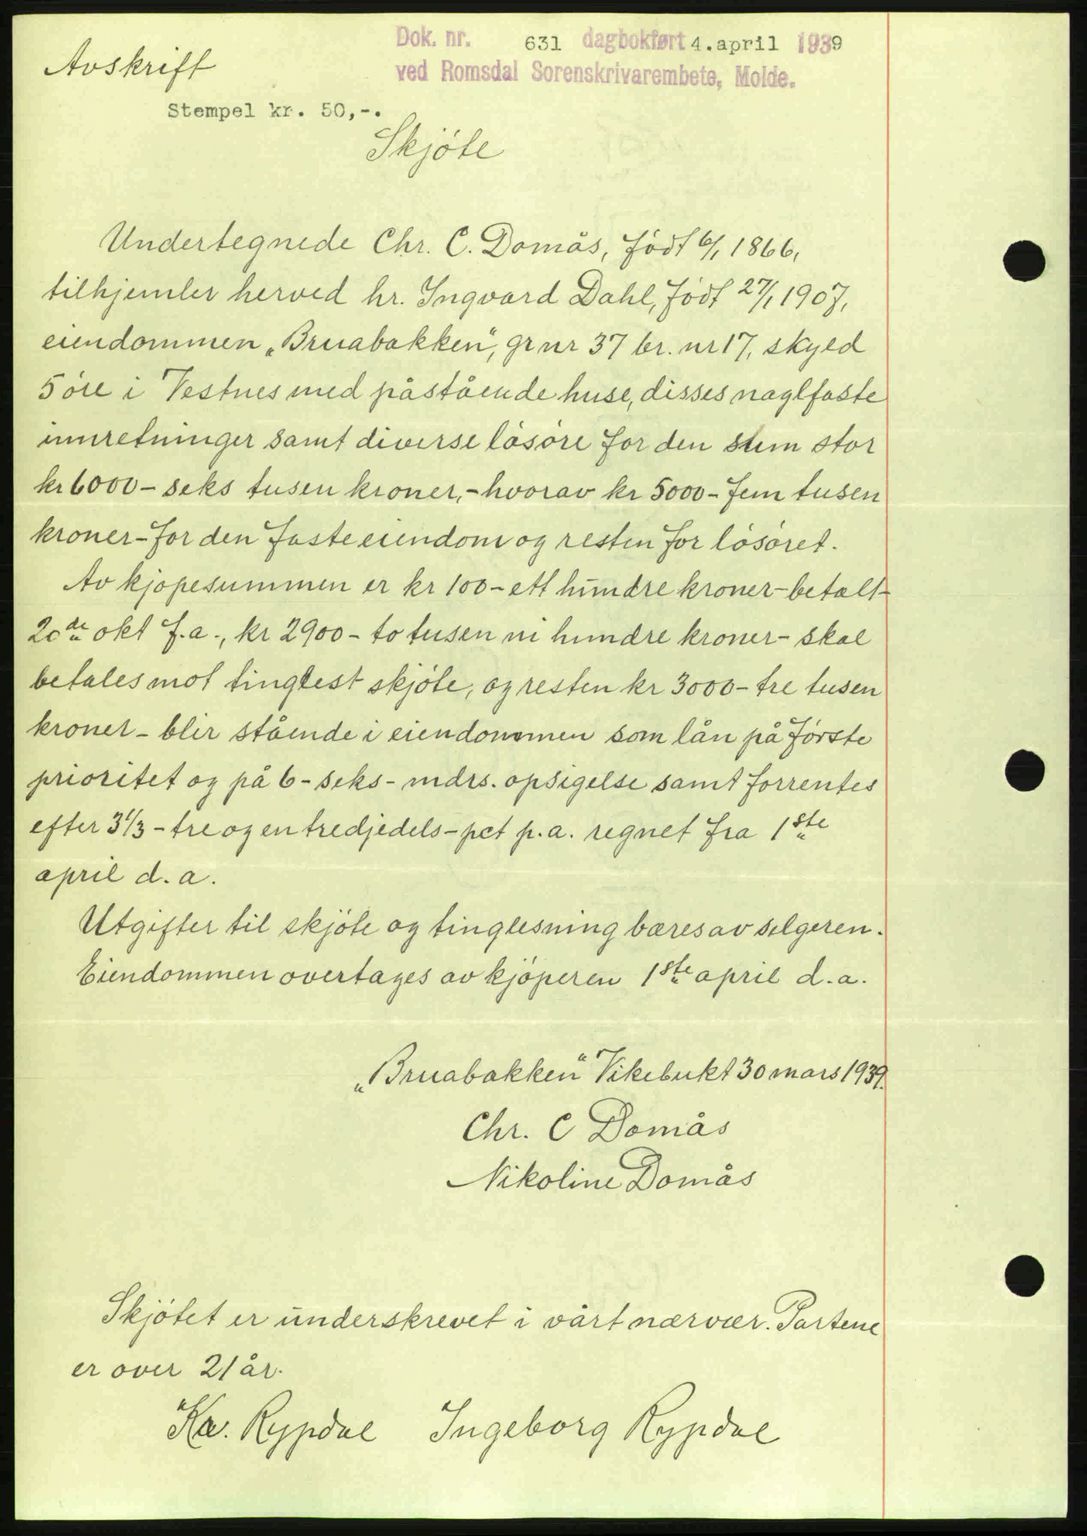 Dok. nr. 631 dagbokført 4.april 1939
Avskrift
ved Romsdal Sorenskrivarembete, Molde.
Stempel kr. 50,-.
Skjóte
Undertegnede Chr. C. Domås, født 6/1 1866,
tilhjemler herved hr. Ingvard Dahl, født 27/1 1907,
eiendommen „Bruabakken“, gr nr 37 br. nr 17, skyld
5 óre i Vestnes med påstående huse, disses naglfaste
innretninger samt diverse lósóre for den sum stor
kr 6000 - seks tusen kroner, - hvorav kr 5000 - fem tusen
kroner - for den faste eiendom og resten for lósóret.
Av kjópesummen er kr 100 - ett hundre kroner - betalt
20de okt f.a., kr 2900 - to tusen ni hundre kroner - skal
betales mot tinglest skjóte, og resten kr 3000 - tre tusen
kroner - blir stående i eiendommen som lån på fórste
prioritet og på 6 - seks - mdrs. opsigelse samt forrentes
efter 3 1/3 - tre og en tredjedels - pct p.a. regnet fra 1ste
april d.a.
Utgifter til skjóte og tinglesning bæres av selgeren.
Eiendommen overtages av kjóperen 1ste april d.a.
„Bruabakken“ Vikebukt 30 mars 1939.
Chr. C Domås
Nikoline Domås
Skjótet er underskrevet i vårt nærvær. Partene
er over 21 år.
Kr. Rypdal Ingeborg Rypdal